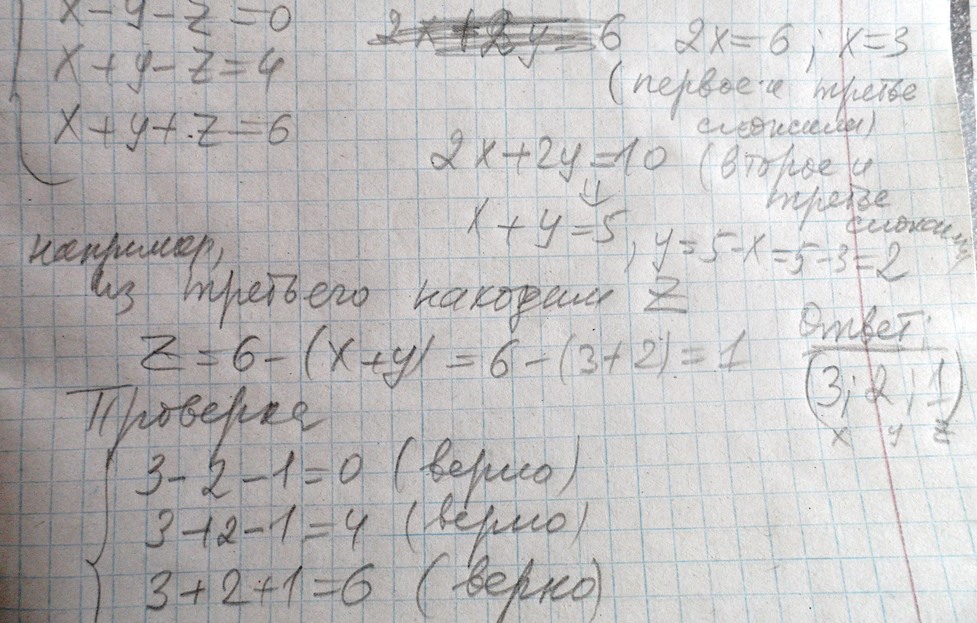 x-y-z=0
x+y-z=4
x+y+z=6
2x=6; x=3
(первое и третье
сложили)
2x+2y=10 (второе и
третье
сложили)
x+y=5, y=5-x=5-3=2
например,
из третьего находим z
z=6-(x+y)=6-(3+2)=1
Ответ:
(3; 2; 1)
x y z
Проверка
3-2-1=0 (верно)
3+2-1=4 (верно)
3+2+1=6 (верно)